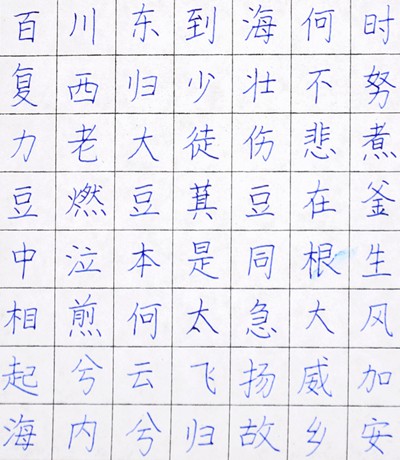 百川东到海何时
复西归少壮不努
力老大徒伤悲煮
豆燃豆萁豆在釜
中泣本是同根生
相煎何太急大风
起兮云飞扬威加
海内兮归故乡安